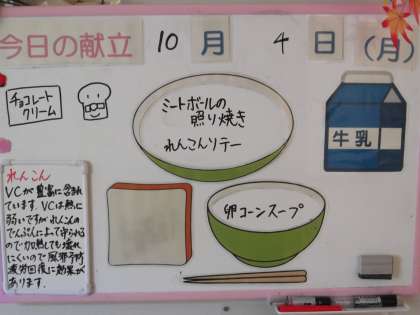 今日の献立 10月 4日(月)
チョコレート
クリーム
ミートボールの
照り焼き
れんこんソテー
牛乳
卵コーンスープ
れんこん
VCが豊富に含まれ
ています。VCは熱に
弱いですがれんこんの
でんぷんによって守られる
ので加熱しても壊れ
にくいので風邪予防
疲労回復に効果が
あります。